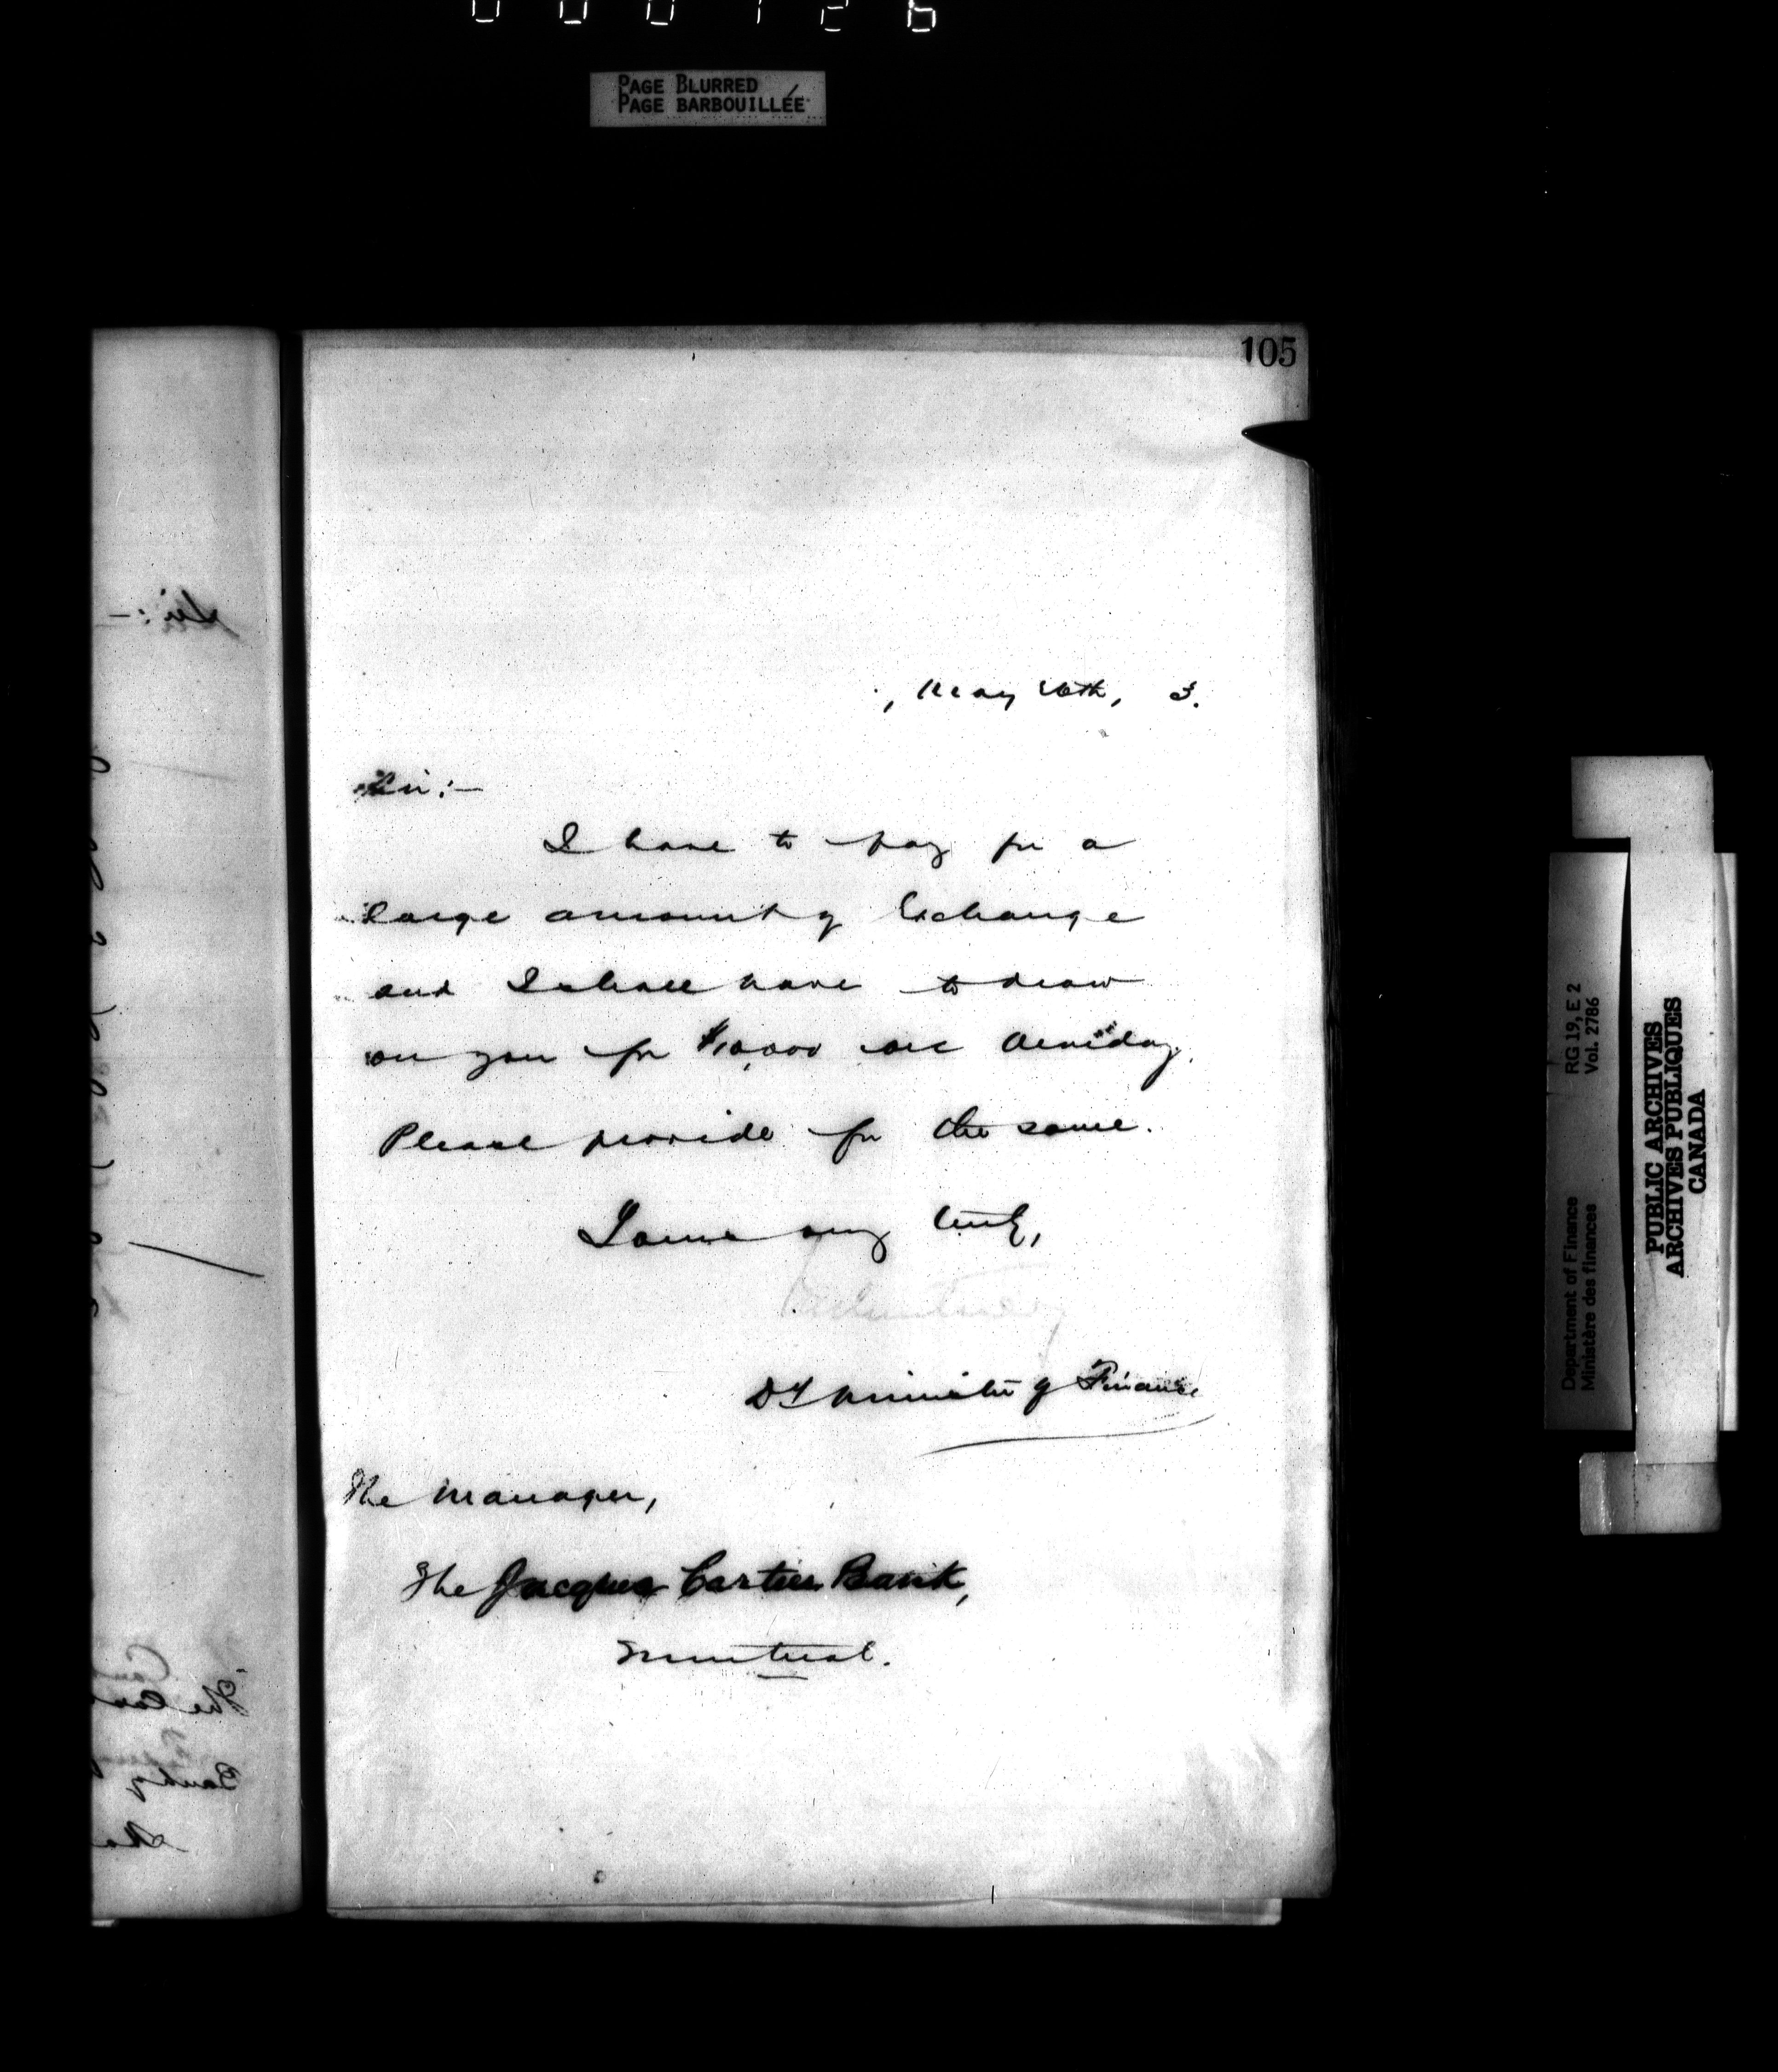 000126
PAGE BLURRED
PAGE BARBOUILLÉE
105
, May 20th, 3.
Sir:-
I have to pay for a
large amount of Exchange
and I shall have to draw
on you for $10,000 on
Please provide for the same.
I am sir
Dy Minister of Finance
The Manager,
The Jacques Cartier Bank,
Montreal.
Sir:-
RG 19, E 2
Vol. 2786
Department of Finance
Ministère des finances
PUBLIC ARCHIVES
ARCHIVES PUBLIQUES
CANADA